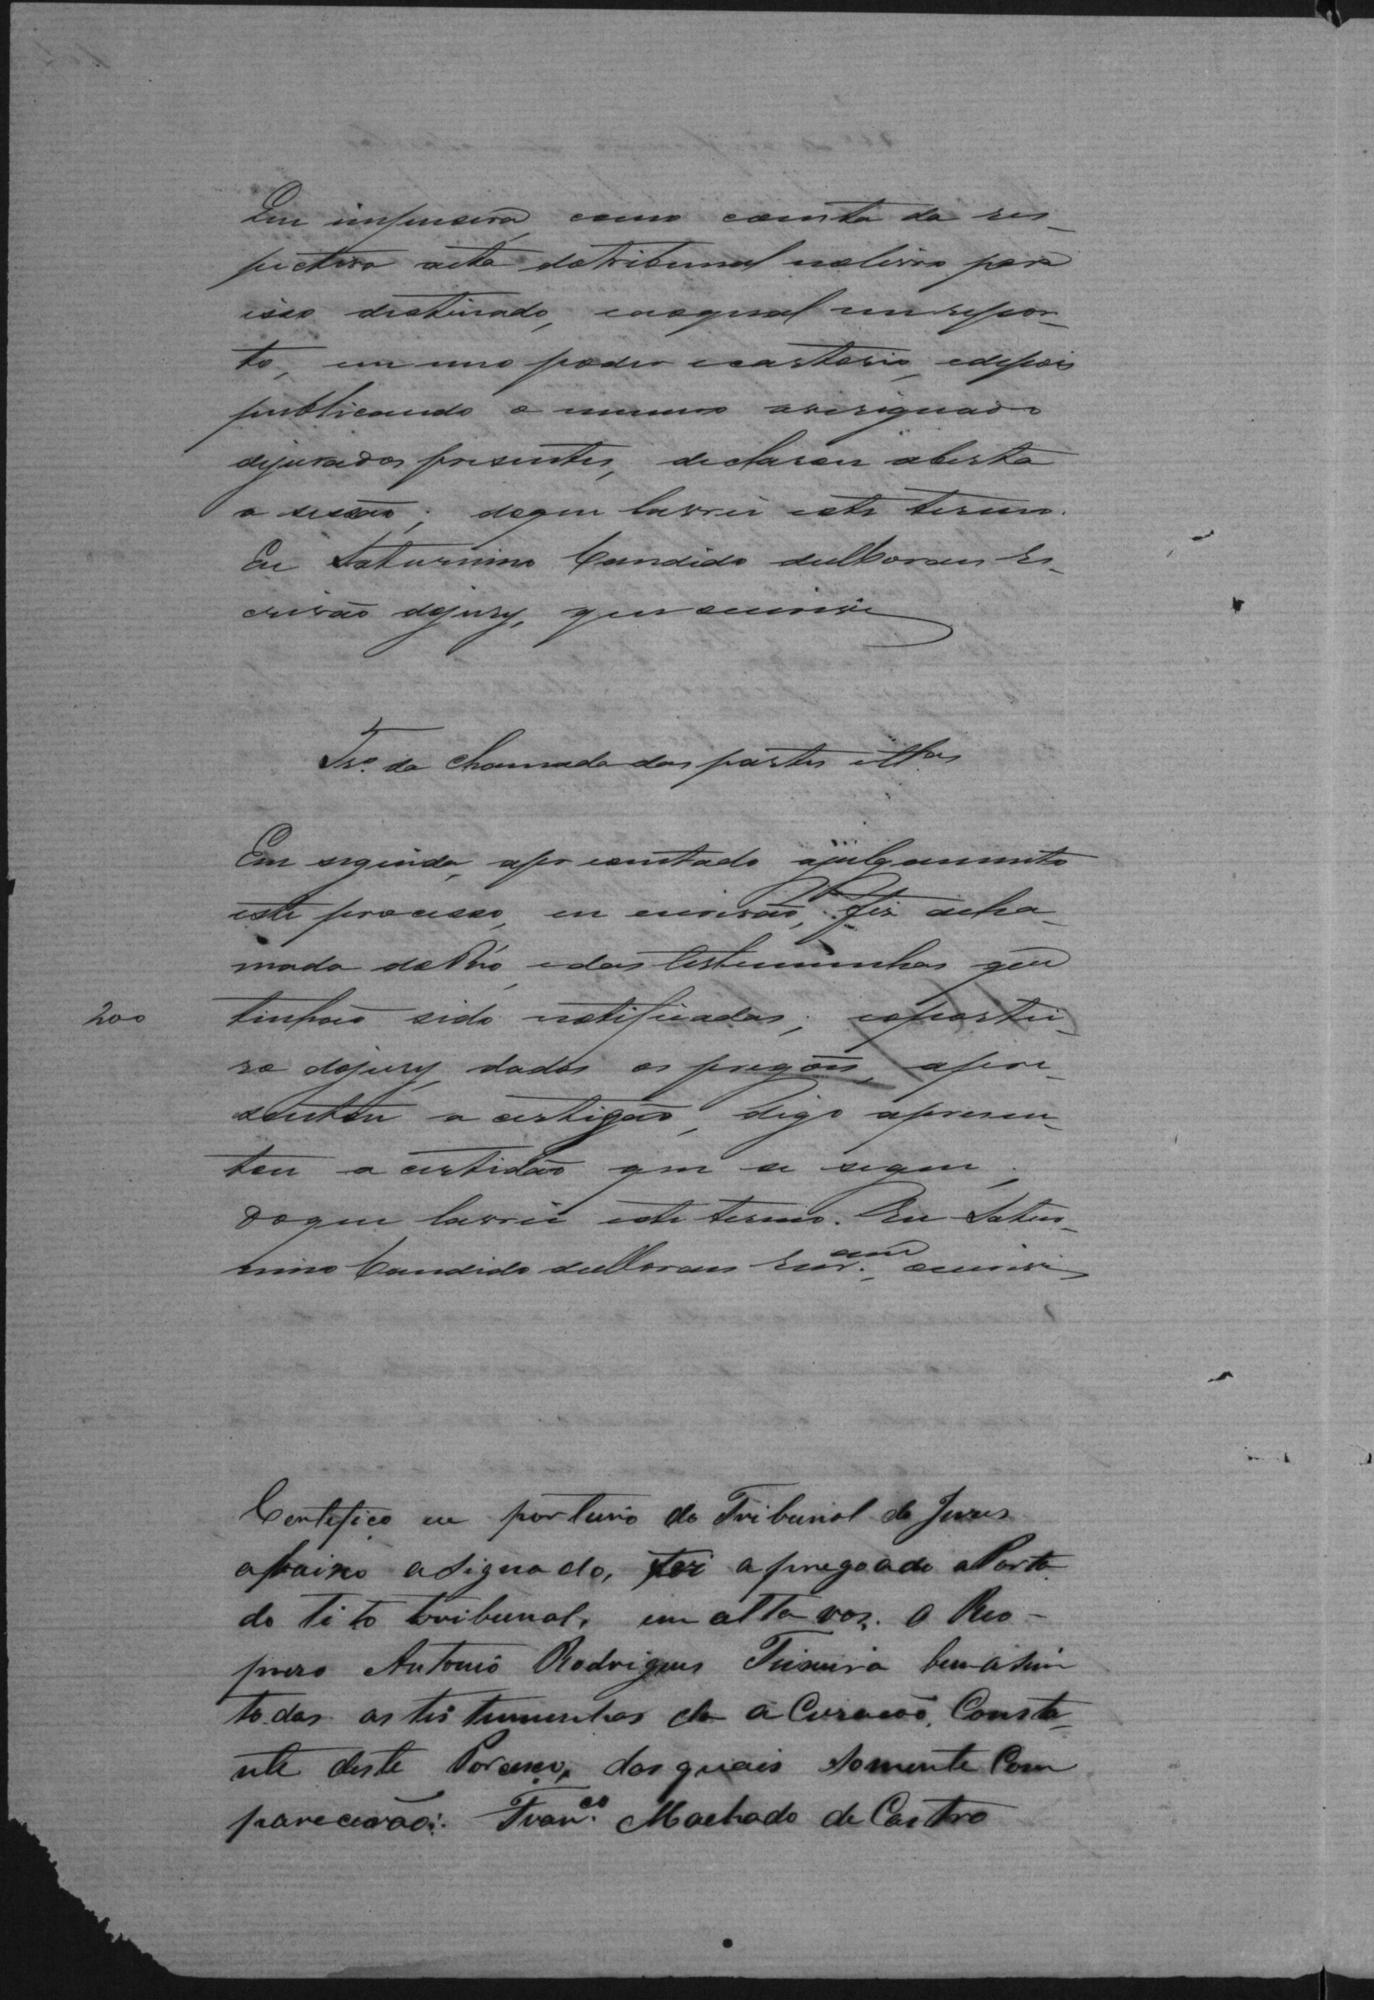 que impusera, como consta da res-
pectiva acta do tribunal no livro para
isso destinado, no qual me repor-
to, em meo poder e cartorio, e depois
publicando o numero averiguado
de jurados presentes, declarou aberta
a sessão; do que lavrei este termo.
Eu Saturnino Candido de Moraes Es-
crivão do jury, que escrevi
Tro. da chamada das partes e tas
Em seguida, apresentado a julgamento
este processo, eu escrivão, fiz a cha-
mada do Réo, e das testemunhas que
200
tinhão sido notificadas; e o portei-
ro do jury, dados os pregões, apre-
sentou a certigão, digo apresen-
tou a certidão que se segue;
do que lavrei este termo. Eu Satur-
nino Candido de Moraes Escr.am escrevi
Certefico eu porteiro do Tribunal do Jures
abaixo asignado, ter apregoado a Porta
do tito tribunal, em alta vos. o Reo
prezo Antonio Rodrigues Teixeira bem asim
todas as testumunhas da acuração, Consta-
nte deste Porceço, das quais somente Com
parecerão: Fran.co Machado de Castro